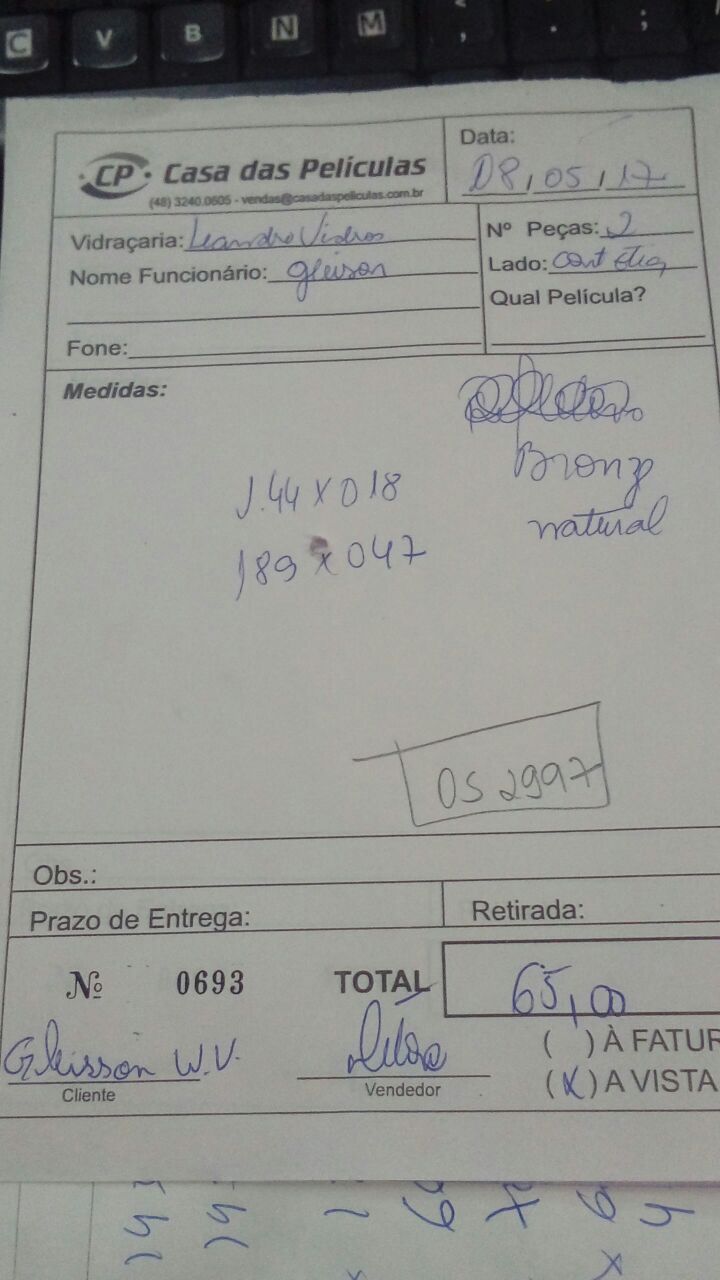 C V B N M , . ;
CP Casa das Películas
(48) 3240.0605 - vendas@casadaspeliculas.com.br
Data:
08,05,17
Vidraçaria: Leandro Vidros
Nome Funcionário: gleison
Fone:
Nº Peças: 2
Lado:
Qual Película?
Medidas:
Bronze
natural
1.44 x 018
189 x 047
OS 2997
Obs.:
Prazo de Entrega:
Retirada:
Nº 0693
TOTAL 65,00
Gleisson W.V.
Cliente
Vendedor
( ) À FATUR
(X) A VISTA